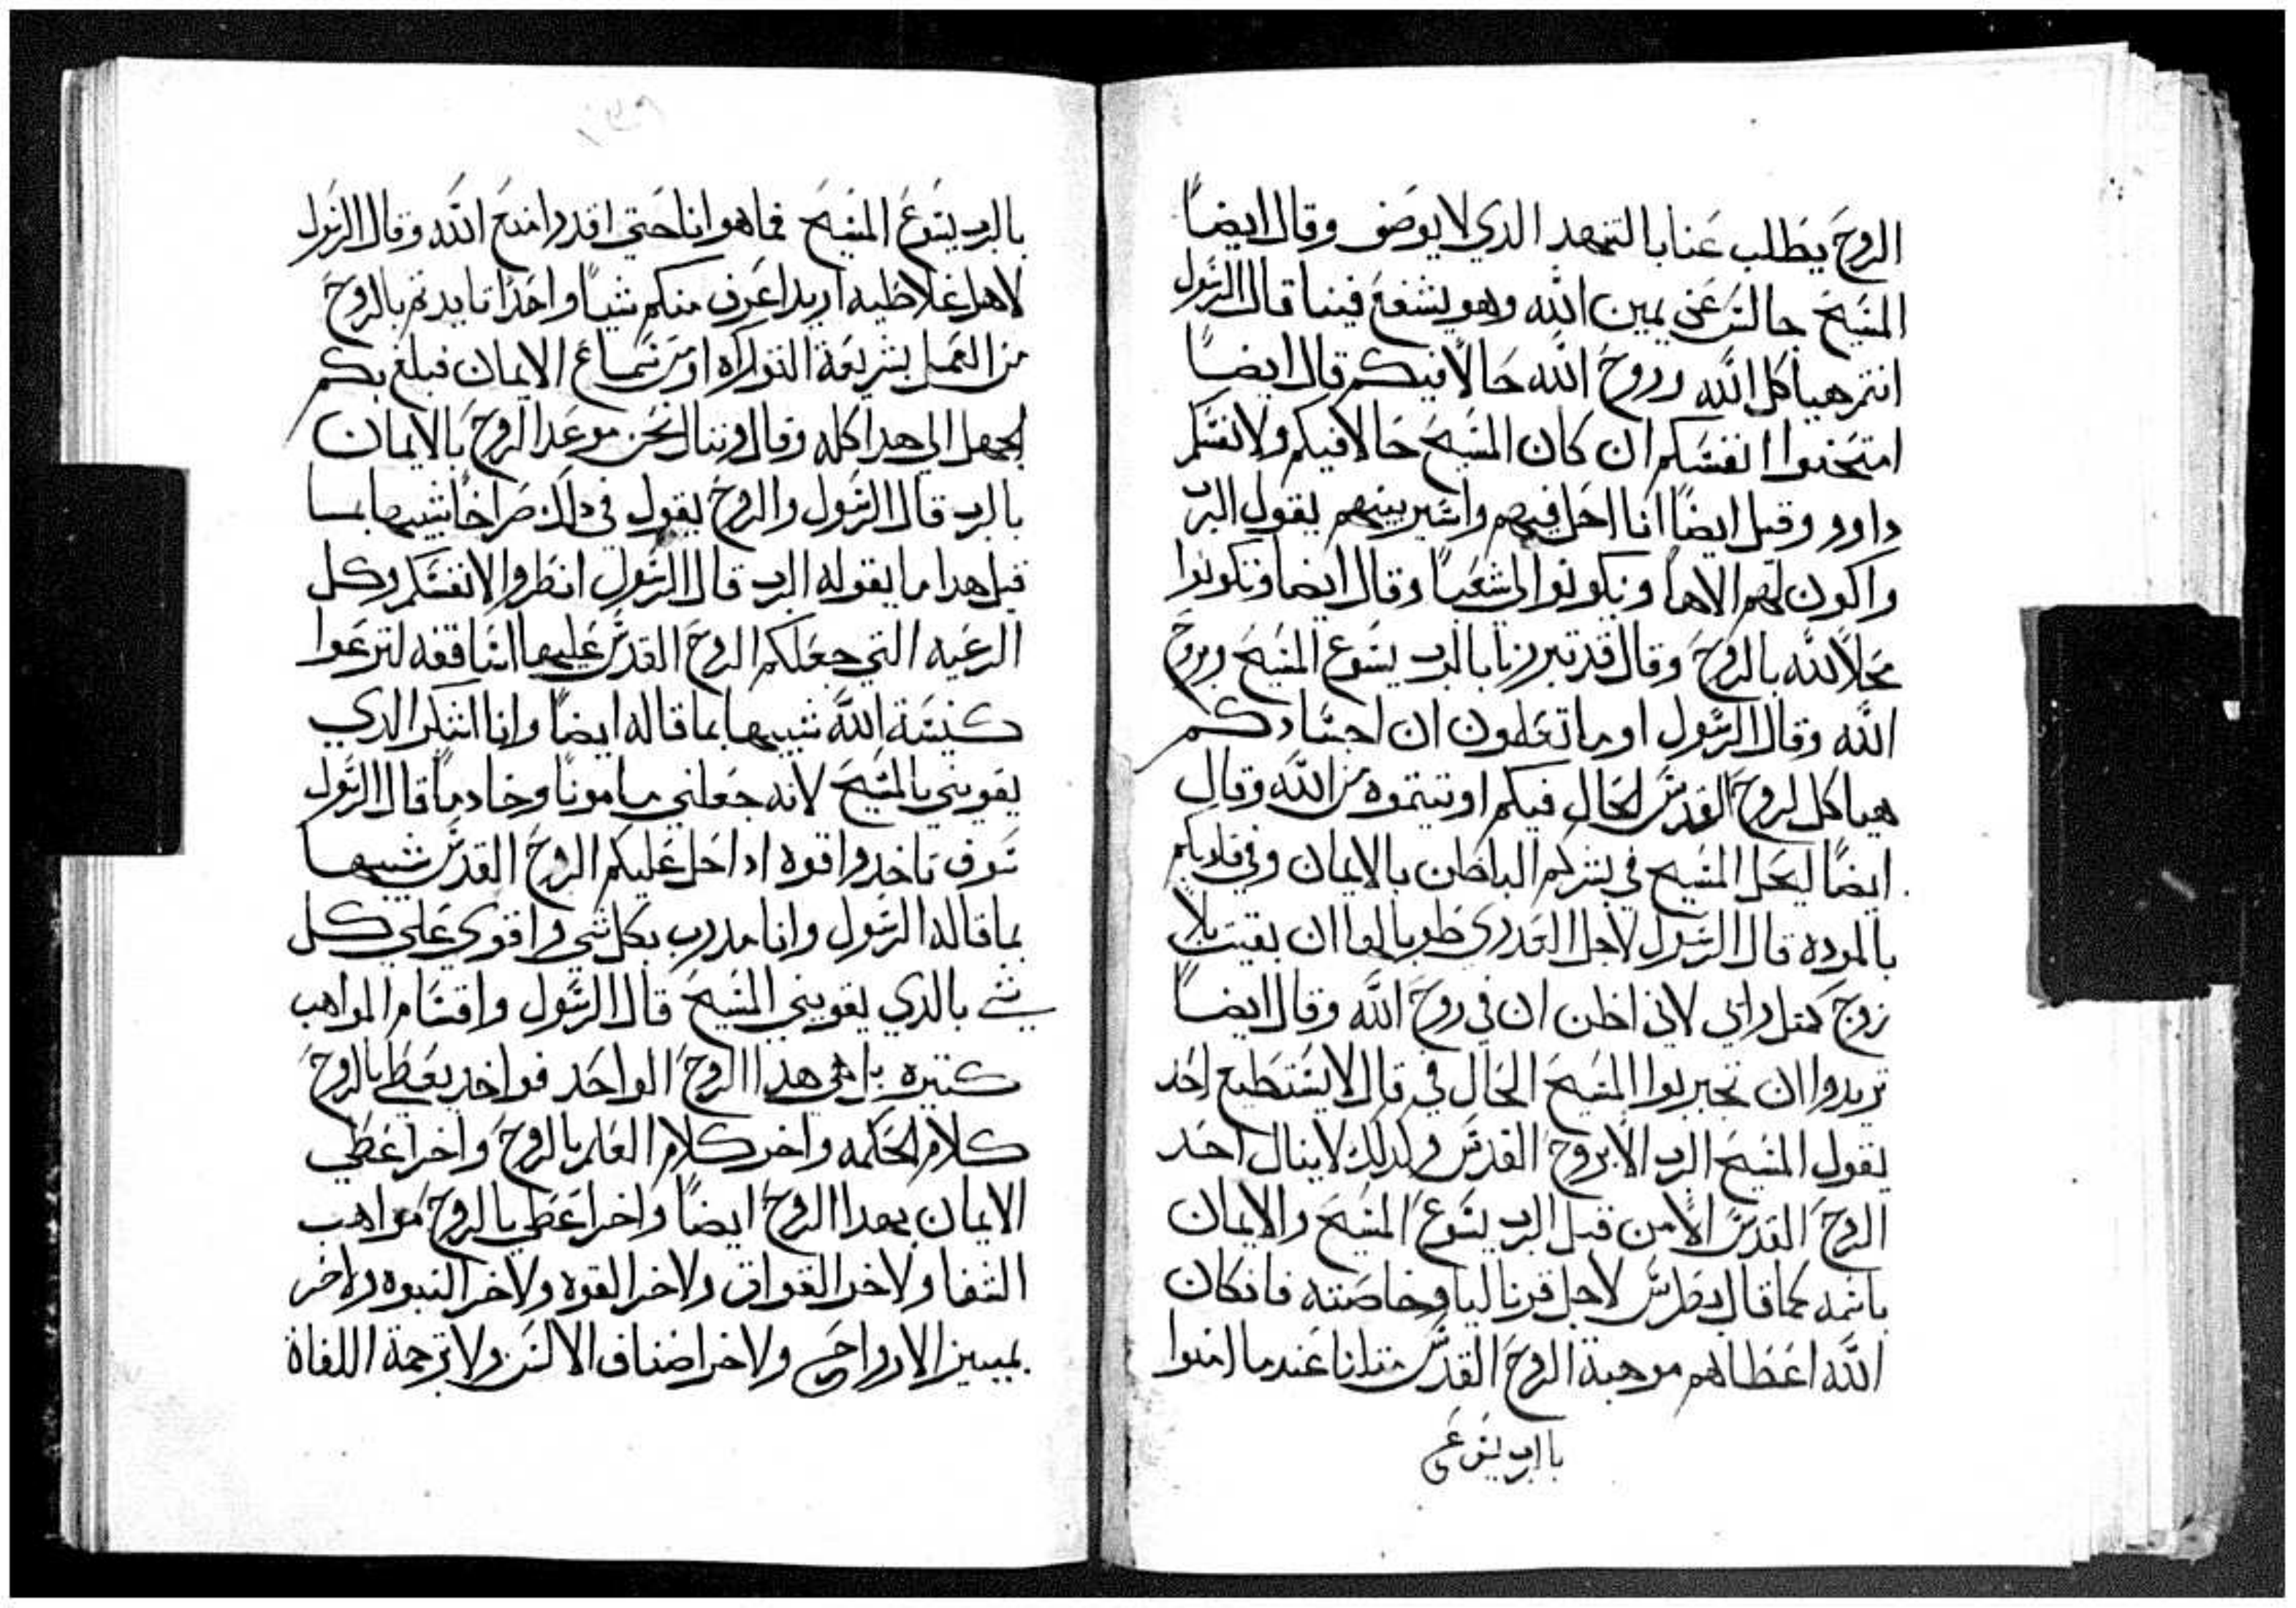 الروح يطلب عنا بالتنهد الدي لا يوصف وقال ايضاً
المسيح جالس عن يمين الله وهو يشفع فينا قال الرسول
انتم هياكل الله وروح الله حالاً فيكم قال ايضاً
امتحنوا انفسكم ان كان المسيح حالا فيكم ولا نفسكم
داود وقيل ايضاً انا احل فيهم واسير بينهم يقول الرب
واكون لهم الاهاً ويكونوا لي شعباً وقال ايضا وتكونوا
محلاً لله بالروح وقال قد تبررنا بالرب يسوع المسيح وبروح
الله وقال الرسول اوما تعلمون ان اجسادكم
هياكل لروح القدس الحال فيكم اوتيتموه من الله وقال
ايضاً ليحل المسيح في بشركم الباطن بالايمان وفي قلوبكم
بالموده قال الرسول لاجل العدري طوبا لها ان بقيت بلا
زوج كمتل رايي لاني اظن ان في روح الله وقال ايضاً
تريدوا ان تجربوا المسيح الحال في قال لا يستطيع احد
يقول المسيح الرب الا بروح القدس ولدلك لا ينال احد
الروح القدس الا من قبل الرب يسوع المسيح والايمان
باسمه كما قال بطرس لاجل قرناليا وخاصته فان كان
الله اعطاهم موهبة الروح القدس متلنا عندما امنوا
بالرب يسوع
بالرب يسوع المسيح فما هو انا حتي اقدر امنع الله وقال الرسول
لاهل غلاطيه اريد اعرف منكم شياً واحداً انا بدتم بالروح
من العمل بشريعة التوراه او من سماع الايمان فبلغ بكم
الجهل الي هدا كله وقال وننال نحن موعد الروح بالايمان
بالرب قال الرسول والروح يقول في دلك صراخاً شبيها بما
قبل هدا ما يقوله الرب قال الرسول انظروا لانفسكم وكل
الرعيه التي جعلكم الروح القدس عليها اساقفه لترعوا
كنيسة الله شبيها بما قاله ايضاً وانا اشكر الدي
يقويني بالمسيح لانه جعلني مامونًا وخادماً قال الرسول
سوف تاخدوا قوه ادا حل عليكم الروح القدس شبيها
بما قاله الرسول وانا مدرب بكل شي واقوي علي كل
شي بالدي يقويني المسيح قال الرسول واقسام المواهب
كتيره بل هي هدا الروح الواحد فواحد يعطي بالروح
كلام الحكمه واخر كلام العلم بالروح واخر اعطي
الايمان بهدا الروح ايضاً واخر اعطي بالروح مواهب
الشفا ولاخر القواة ولاخر القوه ولاخر النبوه ولاخر
تمييز الارواح ولاخر اصناف الالسن ولا ترجمة اللغاة